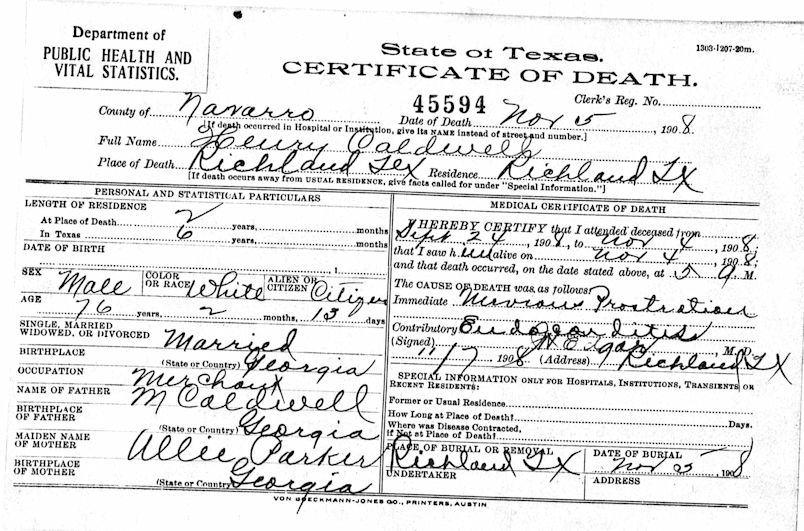 Department of
PUBLIC HEALTH AND
VITAL STATISTICS.
1303-1207-20m.
State of Texas.
CERTIFICATE OF DEATH.
County of Navarro 45594 Date of Death Nov 5, 1908 Clerk's Reg. No.
[If death occurred in Hospital or Institution, give its NAME instead of street and number.]
Full Name Henry Caldwell
Place of Death Richland Tex Residence Richland TX
[If death occurs away from USUAL RESIDENCE, give facts called for under "Special Information."]
PERSONAL AND STATISTICAL PARTICULARS
LENGTH OF RESIDENCE
At Place of Death 2 years, months
In Texas 6 years, months
DATE OF BIRTH
SEX Male COLOR OR RACE White ALIEN OR CITIZEN Citizen
AGE 76 years, 2 months, 13 days
SINGLE, MARRIED
WIDOWED, OR DIVORCED Married
BIRTHPLACE (State or Country) Georgia
OCCUPATION Merchant
NAME OF FATHER M Caldwell
BIRTHPLACE
OF FATHER (State or Country) Georgia
MAIDEN NAME
OF MOTHER Allie Parker
BIRTHPLACE
OF MOTHER (State or Country) Georgia
MEDICAL CERTIFICATE OF DEATH
I HEREBY CERTIFY that I attended deceased from
Sept 24, 1908, to Nov 4, 1908;
that I saw him alive on Nov 4, 1908;
and that death occurred, on the date stated above, at 5 a M.
The CAUSE OF DEATH was as follows:
Immediate Prostration
Contributory
(Signed) M. D.
11/7 1908 (Address) Richland TX
SPECIAL INFORMATION ONLY FOR HOSPITALS, INSTITUTIONS, TRANSIENTS OR
RECENT RESIDENTS:
Former or Usual Residence
How Long at Place of Death? Days.
Where was Disease Contracted,
if Not at Place of Death?
PLACE OF BURIAL OR REMOVAL
Richland TX
DATE OF BURIAL
Nov 1908
UNDERTAKER
ADDRESS
VON BOECKMANN-JONES CO., PRINTERS, AUSTIN